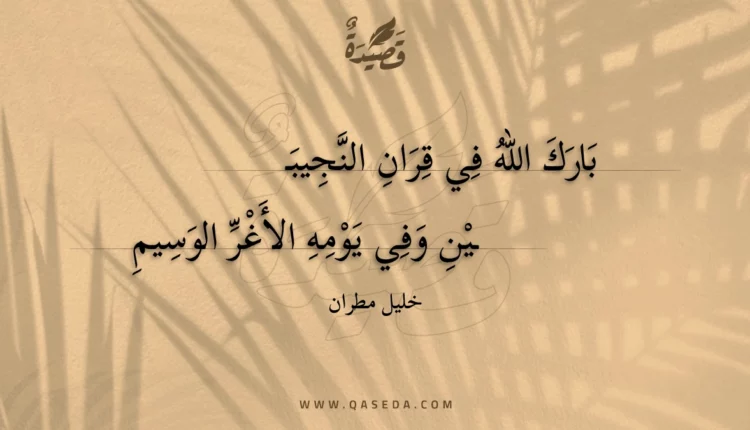 قَصِيْدَةٌ
بَارَكَ اللهُ فِي قِرَانِ النَّجِيبَـ
ـيْنِ وَفِي يَوْمِهِ الأَغْرِّ الوَسِيمِ
خليل مطران
WWW.QASEDA.COM